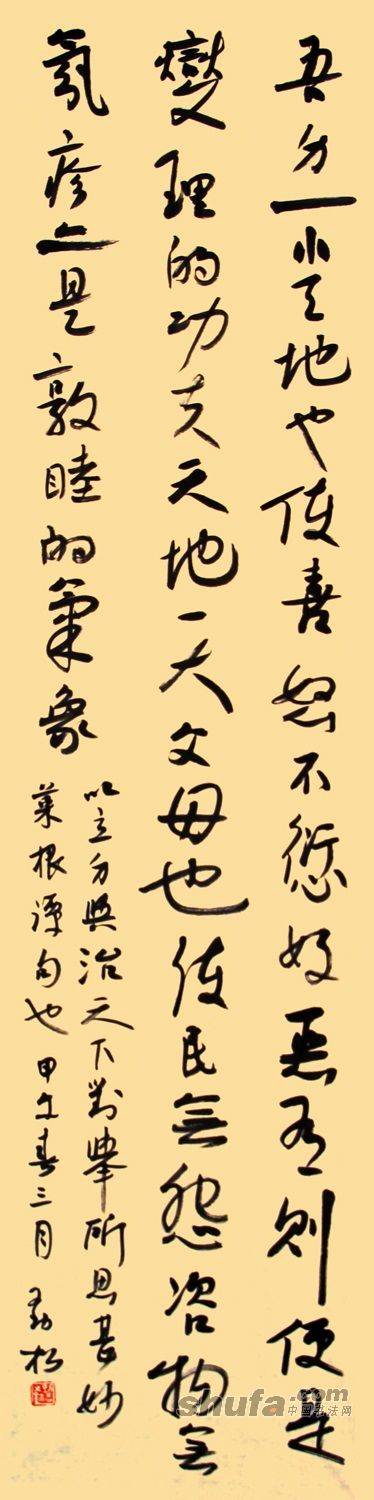 吾身一小天地也使喜怒不愆好惡有則便是
燮理的功夫天地一大父母也使民無怨咨物無
氛疹亦是敦睦的氣象
以立身與治天下對舉所思甚妙
菜根譚句也 甲午春三月 勁松
shufa.com
中国书法网